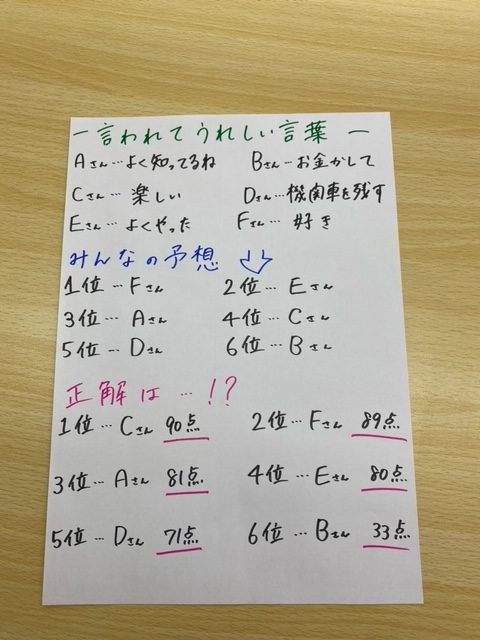 ー言われてうれしい言葉ー
Aさん…よく知ってるね Bさん…お金かして
Cさん…楽しい Dさん…機関車を残す
Eさん…よくやった Fさん…好き
みんなの予想 ⇩
1位…Fさん 2位…Eさん
3位…Aさん 4位…Cさん
5位…Dさん 6位…Bさん
正解は…!?
1位…Cさん 90点 2位…Fさん 89点
3位…Aさん 81点 4位…Eさん 80点
5位…Dさん 71点 6位…Bさん 33点